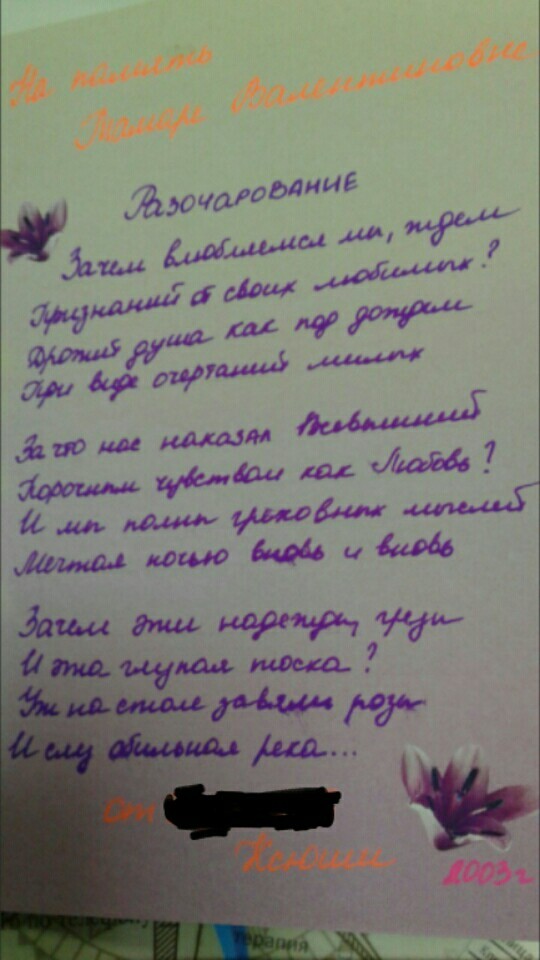 На память
Тамаре Валентиновне
Разочарование
Зачем влюбляемся мы, ждем
Признаний от своих любимых?
Дрожит душа как под дождем
При виде очертаний милых
За что нас наказал Всевышний
Порочным чувством как Любовь?
И мы полны греховных мыслей
Мечтая ночью вновь и вновь
Зачем эти надежды, грезы
И эта глупая тоска?
Уж на столе завяли розы
И слез обильная река...
От
Ксюши
2003 г
терапия